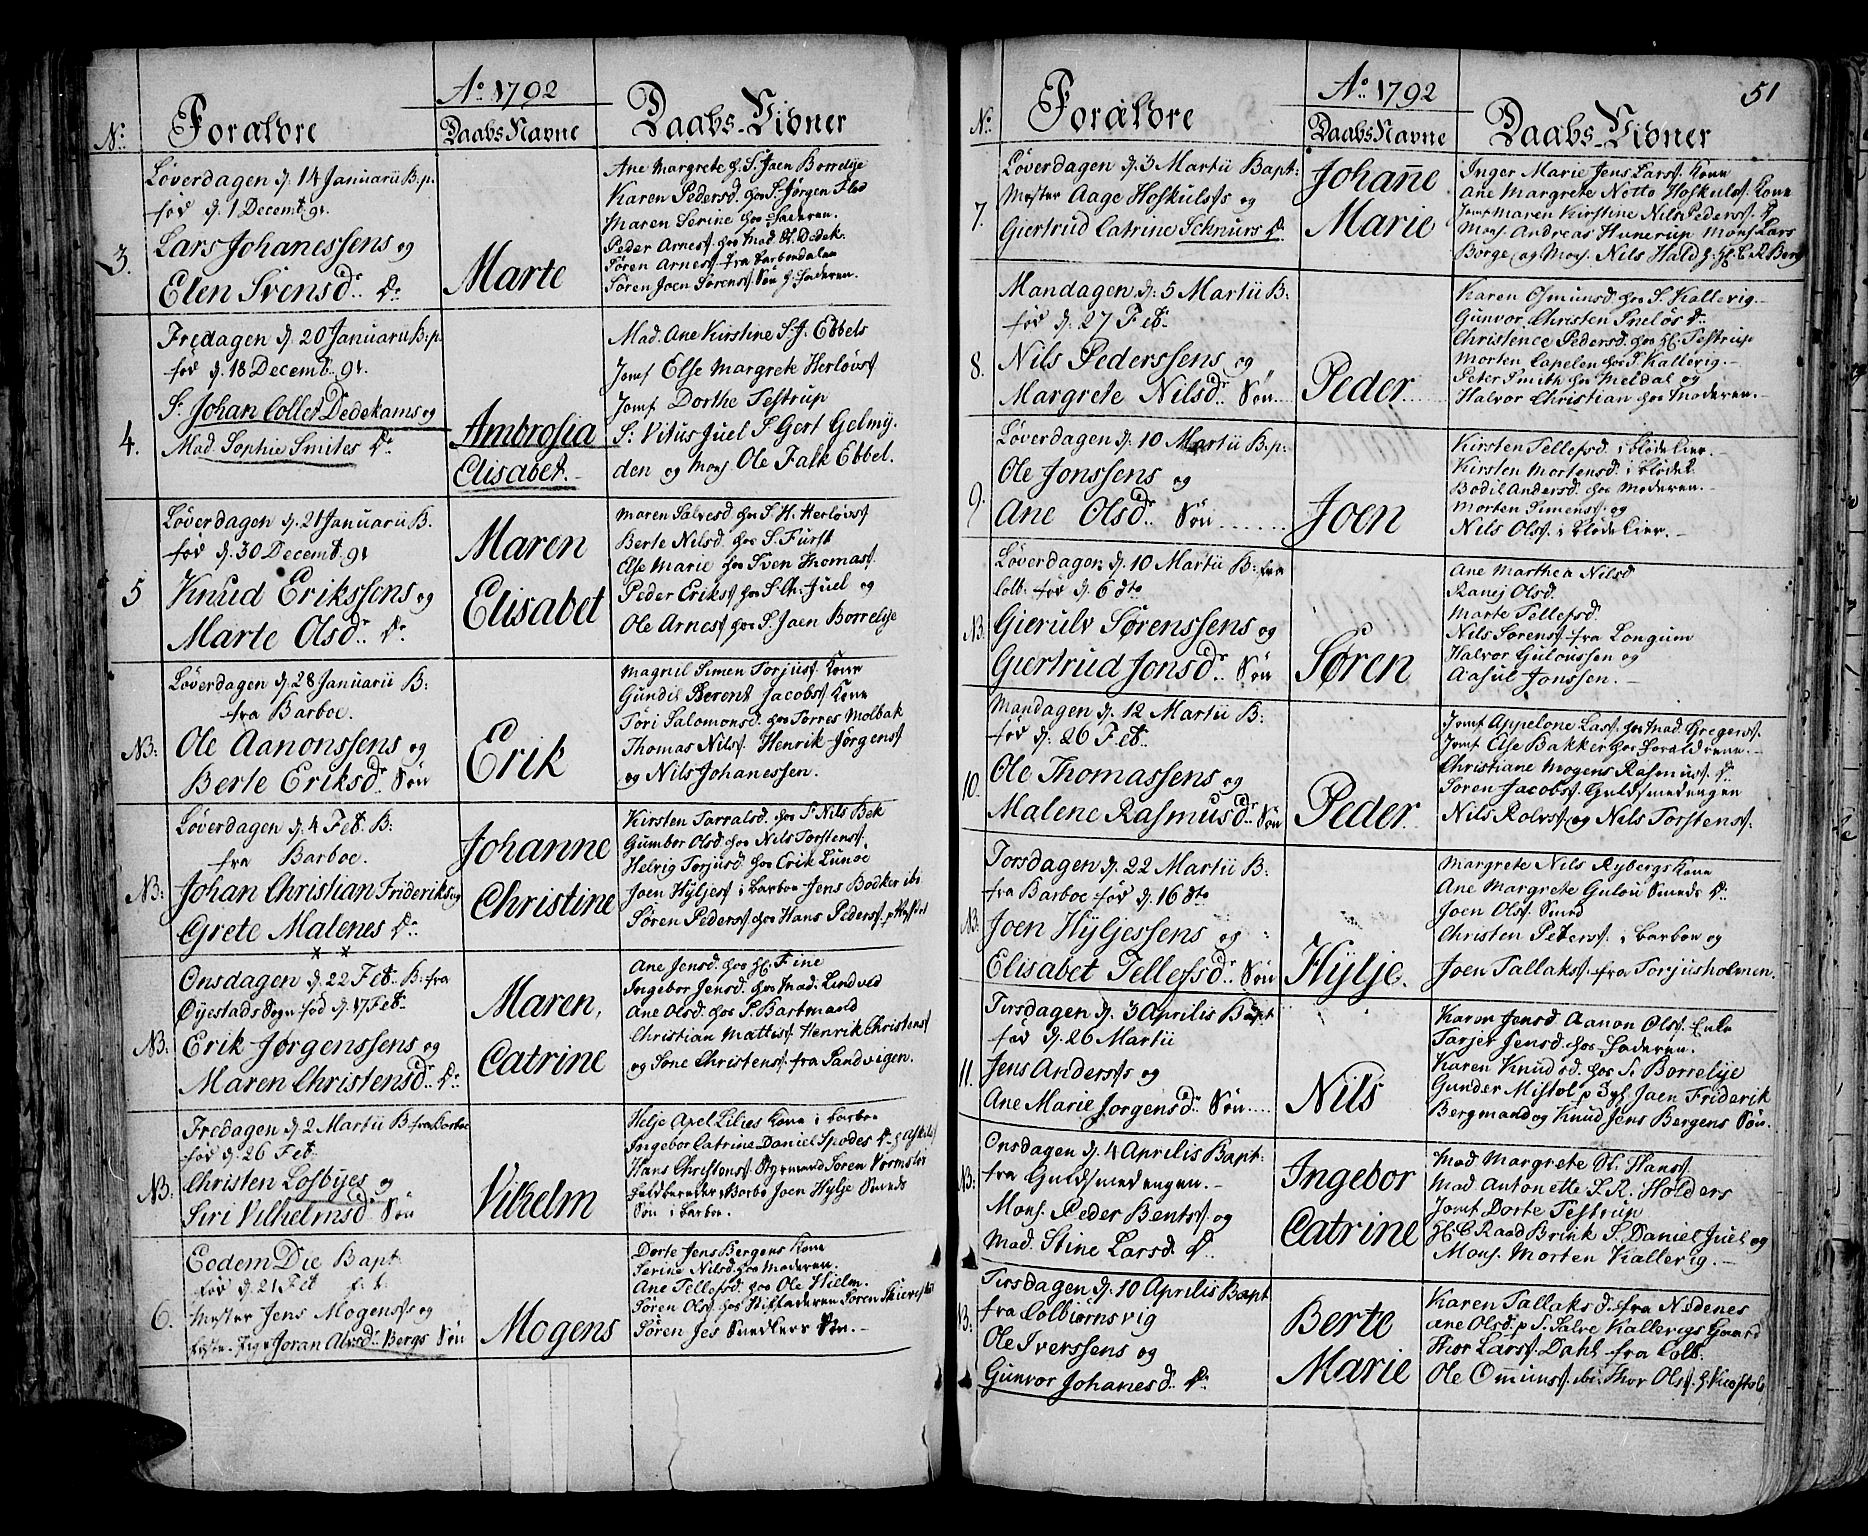 Aº 1792
Nº Forældre Daabs Navne Daabs-Vidner
3.
Løverdagen d. 14 Januarii B.p.
fød d. 1 Decemb. 91.
Lars Johanessens og
Elen Svensd. Dr
Marte
Ane Margrete h. S. Jaen Borrelye
Karen Pedersd. hos S. Jørgen Flod
Maren Serine hos Faderen.
Peder Arness. hos Mad. Dedek.
Søren Arness. fra Barbodalen
Søren Joen Sørens. Søn h. Faderen.
4.
Fredagen d. 20 Januarii B.p.
fød d. 18 Decemb. 91.
S. Johan Coller Dedekams og
Mad. Sophie Smites Dr
Ambrosia
Elisabet.
Mad. Ane Kirstine S. J. Ebbels
Jomf Else Margrete Herløvs.
Jomf Dorthe Testrup
S: Vitus Juel S Gert Gelmy-
den og Mons. Ole Falk Ebbel.
5
Løverdagen d. 21 Januarii B.
fød d. 30 Decemb. 91
Knud Erikssens og
Marte Olsd. Dr
Maren
Elisabet
Maren Salvesd. hos S. H. Herløvs.
Berte Nilsd. hos S. Furst
Else Marie hos Sven Thomass.
Peder Eriks. hos S. Ch. Juel og
Ole Arnes. hos S. Jaen Borrelye
NB:
Løverdagen d. 28 Januarii B:
fra Barboe.
Ole Aanonssens og
Berte Eriksd. Søn
Erik
Magnil Simen Torjus. Kone
Gundil Berent Jacobs. Kone
Tøri Salomonsd. hos Torres Molbak
Thomas Nils. Henrik Jørgens.
og Nils Johanessen.
NB:
Løverdagen d. 4 Feb. B:
fra Barboe.
Johan Christian Frideriks og
Grete Malenes Dr
Johanne
Christine
Kirsten Tarralsd. hos S. Nils Bek
Gumbor Olsd. hos Nils Torstens.
Helvig Torjusd hos Erik Lunde
Joen Hyljes. i Barboe Jens Bødker ibi
Søren Peders. hos Hans Peders.
NB:
Onsdagen d. 22 Feb. B: fra
Øyestads Sogn fød d. 17 Feb.
Erik Jørgenssens og
Maren Christensd. Dr
Maren
Catrine
Ane Jensd. hos H. Fine
Ingebor Jensd. hos Mad: Lindved
Ane Olsd. hos S. Bartmand
Christian Mattis. Henrik Christens.
og Sone Christens. fra Sandvigen.
NB:
Fredagen d. 2 Martii B. fra Barboe
fød d. 26 Feb.
Christen Losbyes og
Siri Vilhelmsd. Søn
Vilhelm
Helje Apel Lilies Kone i Barboe
Ingebor Catrine Daniel Spodes Dr
Hans Christens. Styrmand Søren
Barbo Joen Hylje Smeds
Søn i Barboe.
6.
Eodem Die Bapt.
fød d. 21 Feb
Mester Jens Mogens. og
Joran Alvsd. Bergs Søn
Mogens
Dorte Jens Bergens Kone
Serine Nilsd. hos Moderen.
Ane Tellefsd. hos Ole Hielm.
Søren Ols. hos Stiffaderen Søren
Søren Jes Snedkers Søn.
51
Aº 1792
Nº. Forældre Daabs Navne Daabs-Vidner
7.
Løverdagen d. 3 Martii Bapt:
Mester Aage Hoskuls. og
Giertrud Catrine Schnurs Dr
Johañe
Marie
Inger Marie Jens Lars. Kone
Ane Margrete Netto Hoskuls. Kone
Jomf Maren Kirstine Nils Peders. Dr
Mons. Andreas Hunerup Mons. Lars
Borge og Mons. Nils Hald h. H. C. R. Berg
8.
Mandagen d. 5 Martii B:
fød d. 27 Feb.
Nils Pederssens og
Margrete Nilsd. Søn
Peder
Karen Osmunsd. hos S. Kallevig.
Gunvor Christen Sneløs Dr
Christence Pedersd. hos H. Testrup
Morten Capelen hos S Kallevig.
Peter Smith hos Meldal og
Halvor Christian hos Moderen.
9.
Løverdagen d. 10 Martii B.p:
Ole Jonssens og
Ane Olsd. Søn
Joen
Kirsten Tellefsd. i Blødekier.
Kirsten Mortensd. i Blødek.
Bodil Andersd. hos Moderen.
Morten Simens. og
Nils Ols. i Blødekier.
NB.
Løverdagen d. 10 Martii B: fra
Colb: fød d. 6 dto
Gierulv Sørenssens og
Giertrud Jonsd. Søn
Søren
Ane Marthea Nilsd
Ranej Olsd.
Marte Tellefsd.
Nils Sørens. fra Longum
Halvor Guloussen og
Aasul Jonssen.
10.
Mandagen d. 12 Martii B:
fød d. 26 Feb.
Ole Thomassens og
Malene Rasmusd. Søn
Peder
Jomf Appelone Lass. hos Mad. Gregers.
Jomf Else Bakker hos Forældrene.
Christiane Mogens Rasmus. Dr
Søren Jacobs. Guldsmedengen
Nils Rolvs. og Nils Torstens.
NB.
Torsdagen d. 22 Martii B:
fra Barboe fød d. 16 dto
Joen Hyljessens og
Elisabet Tellefsd. Søn
Hylje.
Margrete Nils Rybergs Kone
Ane Margrete Gulou Smeds Dr
Joen Ols. Smed
Christen Peters. i Barboe og
Joen Tallaks. fra Torjusholmen.
11.
Tirsdagen d. 3 Aprilis Bapt
fød d. 26 Martii
Jens Anders. og
Ane Marie Jorgensd. Søn
Nils
Karen Jensd. Aanon Ols. Enke
Tarjer Jensd. hos Faderen.
Karen Knudsd. hos S. Borrelye
Gunder Mistol p. Jaen Friderik
Bergmand og Knud Jens Bergens Søn.
NB:
Onsdagen d. 4 Aprilis Bapt:
fra Guldsmedengen.
Mons. Peder Bents. og
Mad. Stine Larsd. Dr
Ingebor
Catrine
Mad Margrete St. Hans.
Mad Antonette S. R. Holders
Jomf Dorte Testrup
H. C. Raad Brink S. Daniel Juel og
Mons. Morten Kallevig.
NB:
Tirsdagen d. 10 Aprilis Bapt
fra Colbiørnsvig
Ole Iverssens og
Gunvor Johanesd. Dr
Berte
Marie
Karen Tallaksd. fra Nedenes
Ane Olsd. p. S. Salve Kallevigs Gaard
Thor Lars. Dahl fra Colb.
Ole Omuns. ibi. Thor Ols.